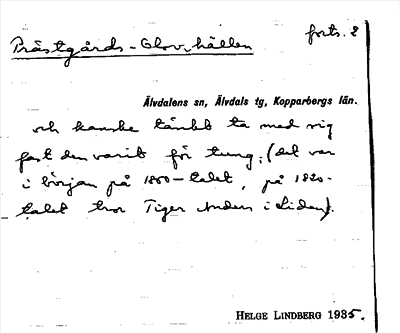 forts. 2
Prästgårds-Olov-hällen
Älvdalens sn, Älvdals tg, Kopparbergs län.
och kanske tänkt ta med sig
fast den varit för tung. (det var
i början på 1800-talet, på 1820-
talet tror Tiger Anders i Liden).
HELGE LINDBERG 1935.